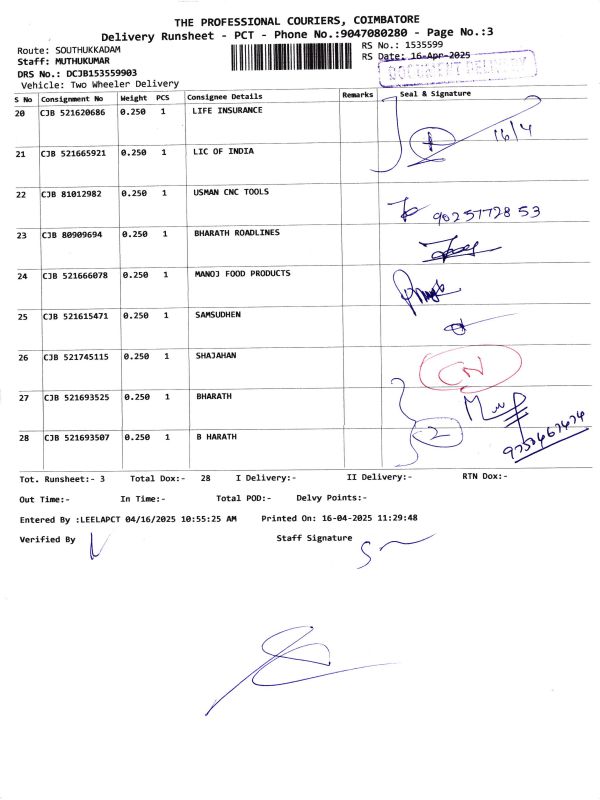 THE PROFESSIONAL COURIERS, COIMBATORE
Delivery Runsheet - PCT - Phone No.:9047080280 - Page No.:3
Route: SOUTHUKKADAM
RS No.: 1535599
Staff: MUTHUKUMAR
RS Date: 16-Apr-2025
DRS No.: DCJB153559903
DOCUMENT DELIVERY
Vehicle: Two Wheeler Delivery
S No Consignment No Weight PCS Consignee Details Remarks Seal & Signature
20 CJB 521620686 0.250 1 LIFE INSURANCE
16/4
21 CJB 521665921 0.250 1 LIC OF INDIA
22 CJB 81012982 0.250 1 USMAN CNC TOOLS
9025772853
23 CJB 80909694 0.250 1 BHARATH ROADLINES
24 CJB 521666078 0.250 1 MANOJ FOOD PRODUCTS
25 CJB 521615471 0.250 1 SAMSUDHEN
26 CJB 521745115 0.250 1 SHAJAHAN
CN
27 CJB 521693525 0.250 1 BHARATH
28 CJB 521693507 0.250 1 B HARATH
2
Tot. Runsheet:- 3 Total Dox:- 28 I Delivery:- II Delivery:- RTN Dox:-
Out Time:- In Time:- Total POD:- Delvy Points:-
Entered By :LEELAPCT 04/16/2025 10:55:25 AM Printed On: 16-04-2025 11:29:48
Verified By Staff Signature